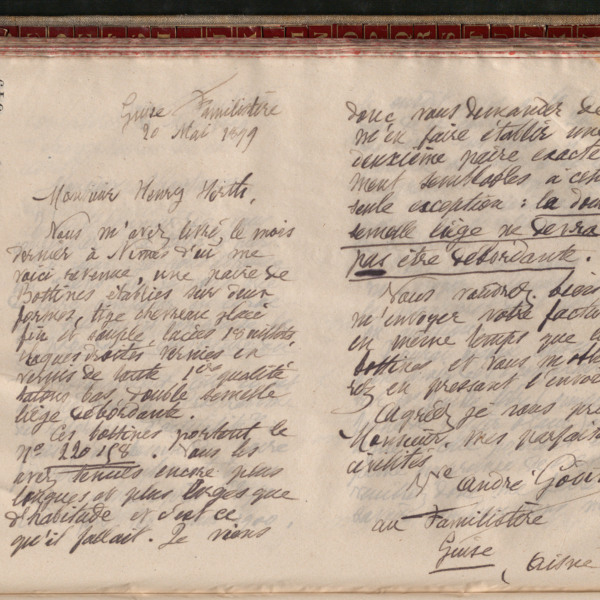 Guise Familistère
20 Mai 1899
Monsieur Henry Hirth,
Vous m'avez livré, le mois
dernier à Nîmes d'où me
voici revenue, une paire de
Bottines établies sur deux
formes, tige chevreau glacé
fin et souple, lacées 18 œillets
claques droites vernies en
vernis de toute 1ère qualité
talons bas, double semelle
liège débordante.
Ces bottines portent le
No 220158 Vous les
avez tenues encore plus
longues et plus larges que
d'habitude et c'est ce
qu'il fallait. Je viens
donc vous demander de
m'en faire établir une
deuxième paire exacte
ment semblables à cette
seule exception : la dou
semelle liège ne devra
pas être débordante.
Vous voudrez bien
m'envoyer votre factu
en même temps que le
bottines et vous m'oblige
rez en pressant l'envoi
Agréez je vous pr
Monsieur, mes parfait
civilités
Ve André Godin
au Familistère
Guise
(Aisne